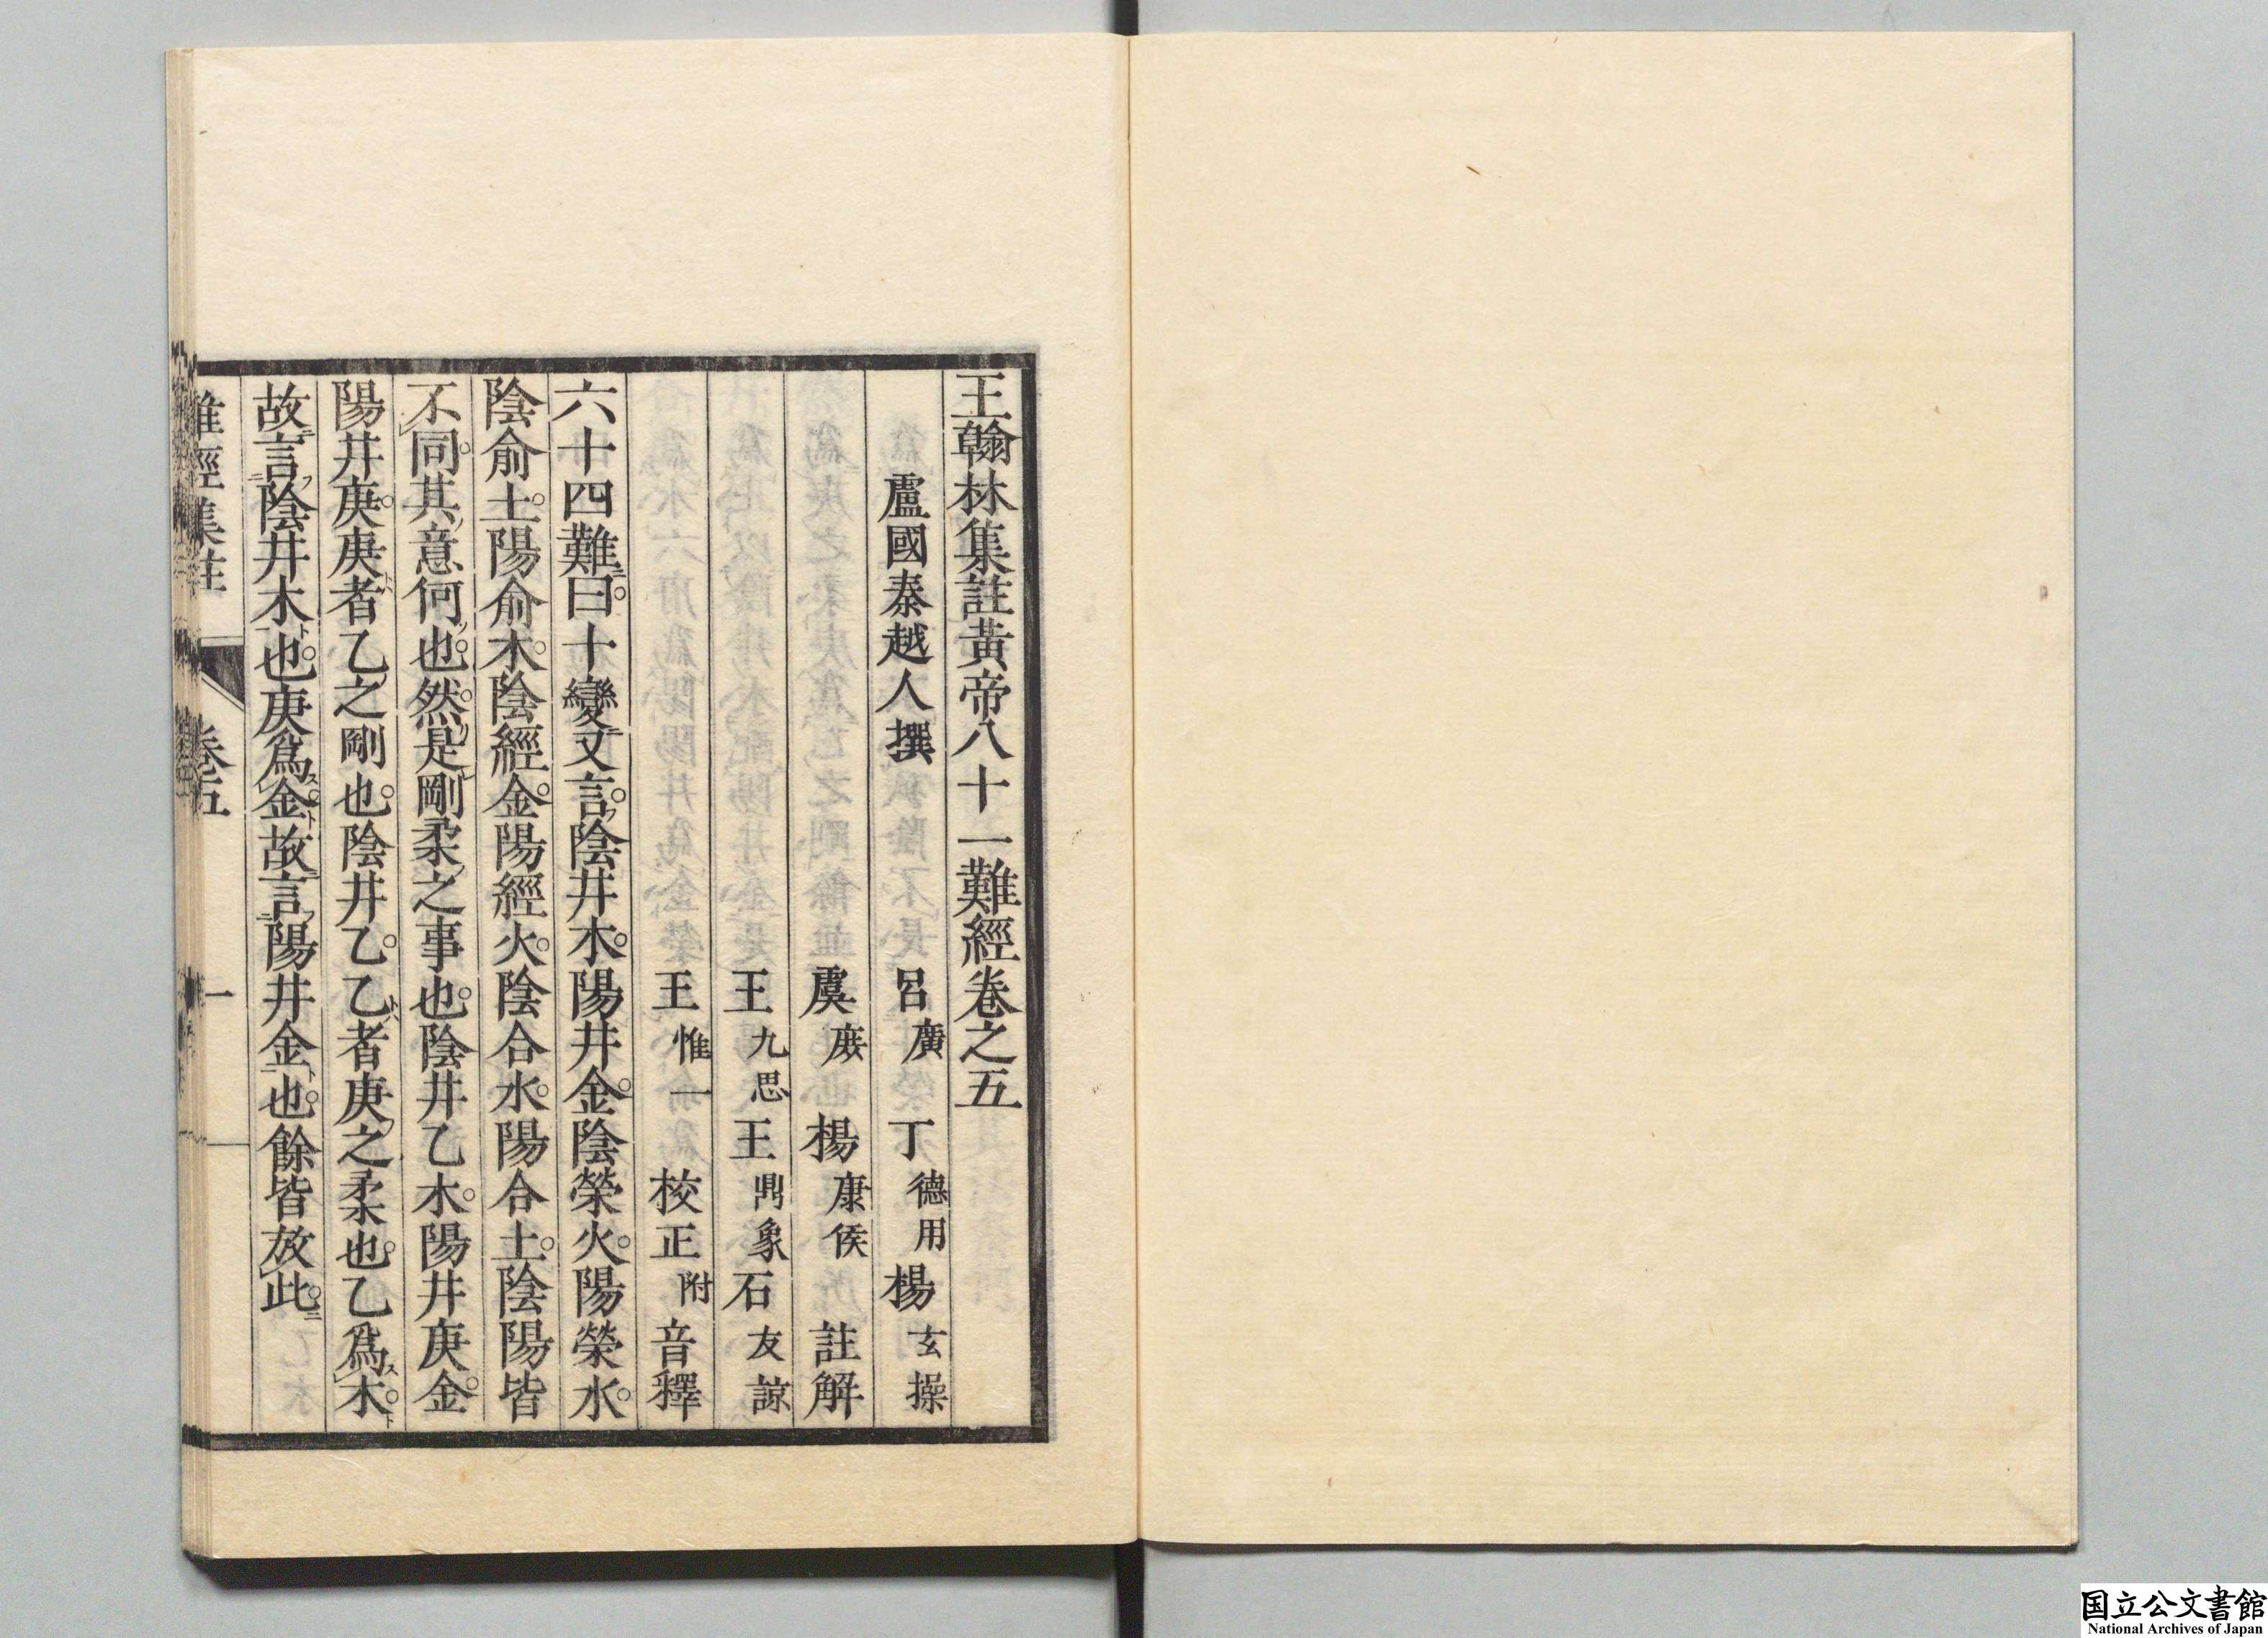 王翰林集註黃帝八十一難經卷之五
盧國秦越人撰 呂廣 丁德用 楊玄操
虞庻 楊康侯 註解
王九思 王鼎象 石友諒
王惟一 校正 附音釋
六十四難曰十變又言陰井木陽井金陰榮火陽榮水
陰俞土陽俞木陰經金陽經火陰合水陽合土陰陽皆
不同其意何也然是剛柔之事也陰井乙木陽井庚金
陽井庚庚者乙之剛也陰井乙乙者庚之柔也乙爲木
故言陰井木也庚爲金故言陽井金也餘皆放此
難經集註 卷五 一
国立公文書館
National Archives of Japan